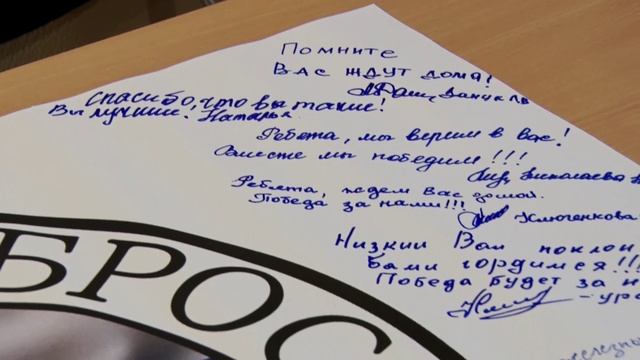 Помните
Вас ждут дома!
Спасибо, что вы такие!
Вы лучшие! Наталья
Ребята, мы верим в вас!
Вместе мы победим!!!
Ребята, ждем Вас домой.
Победа за нами!!!
Ключенкова
Низкий Вам поклон
Вами гордимся!!!
Победа будет за н
БРОС